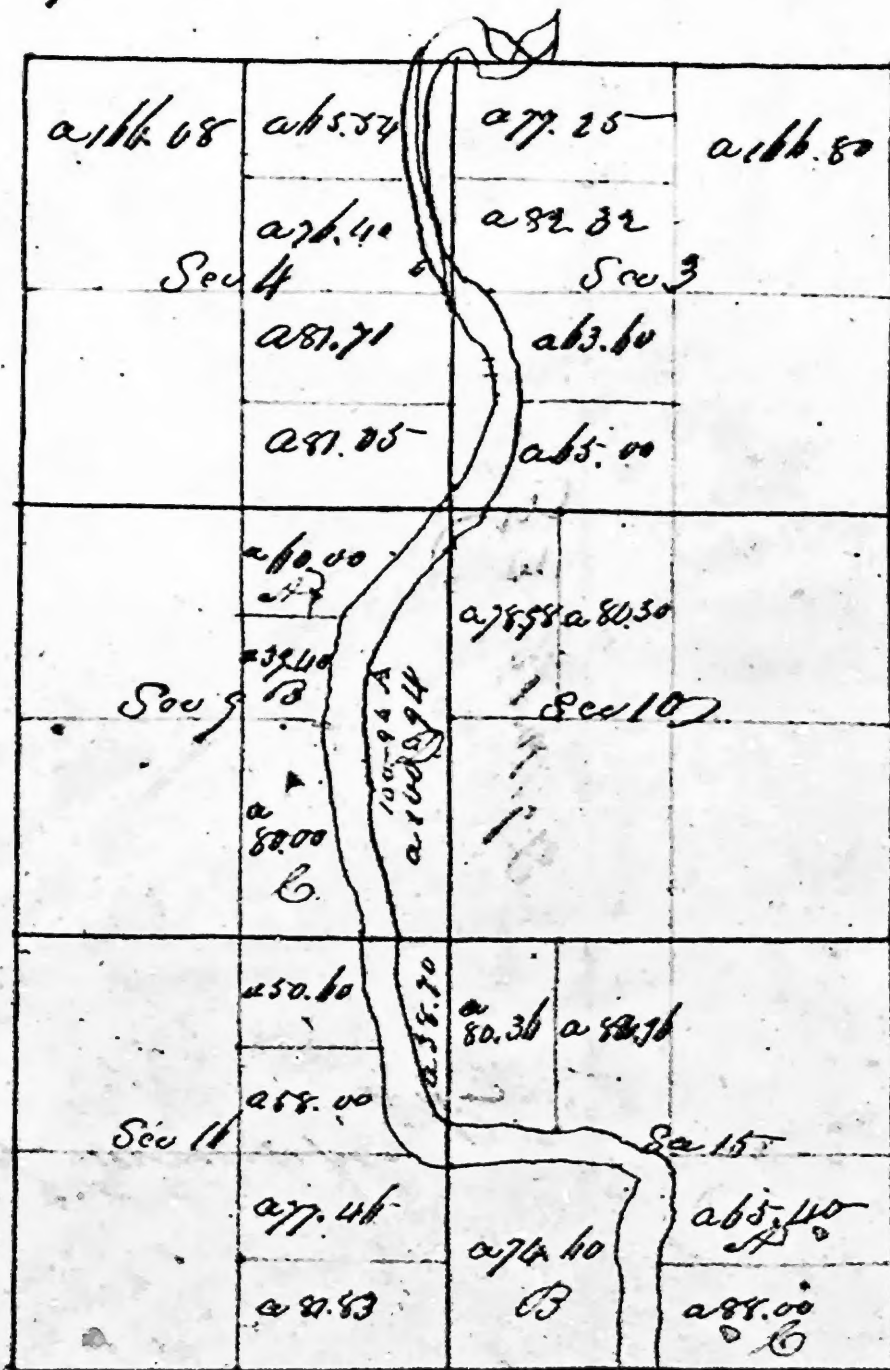 a 166.08
a 65.54
a 77.25
a 166.80
a 76.40
a 82.32
Sec 4
Sec 3
a 81.71
a 63.60
a 81.05
a 65.00
a 60.00
A
a 78.58 a 80.30
a 39.40
B
Sec 9
Sec 10
100-94 A
a 100.94
a
80.00
C
a 50.60
a 38.70
a
80.36
a 58.00
Sec 16
Sec 15
a 77.46
a 65.40
A
a 74.60
B
a 81.83
a 88.00
C